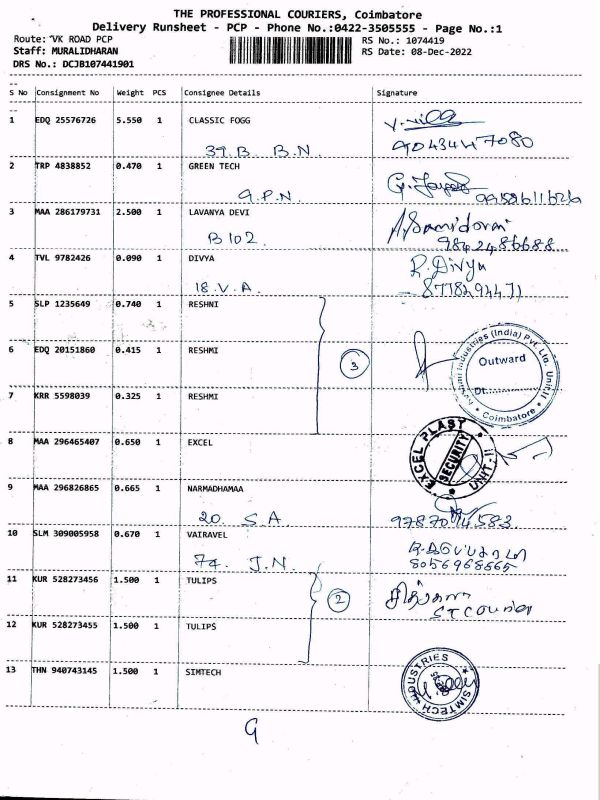 THE PROFESSIONAL COURIERS, Coimbatore
Delivery Runsheet - PCP - Phone No.:0422-3505555 - Page No.:1
Route: VK ROAD PCP
RS No.: 1074419
Staff: MURALIDHARAN
RS Date: 08-Dec-2022
DRS No.: DCJB107441901
S No Consignment No Weight PCS Consignee Details Signature
1 EDQ 25576726 5.550 1 CLASSIC FOGG
39.B B.N.
2 TRP 4838852 0.470 1 GREEN TECH
9.P.N.
3 MAA 286179731 2.500 1 LAVANYA DEVI
B 102.
9842486688
4 TVL 9782426 0.090 1 DIVYA R. Divya
18.V.A.
5 SLP 1235649 0.740 1 RESHNI
6 EDQ 20151860 0.415 1 RESHMI 3
Industries (India) Pvt. Ltd. Unit.II
Outward
Dt.
Coimbatore
7 KRR 5598039 0.325 1 RESHMI
8 MAA 296465407 0.650 1 EXCEL
EXCEL PLAST UNIT-II
SECURITY
9 MAA 296826865 0.665 1 NARMADHAMAA
20. S.A.
10 SLM 309005958 0.670 1 VAIRAVEL
74. J.N.
8056968665
11 KUR 528273456 1.500 1 TULIPS 2
ST Courier
12 KUR 528273455 1.500 1 TULIPS
13 THN 940743145 1.500 1 SIMTECH
SIMTECH INDUSTRIES
9